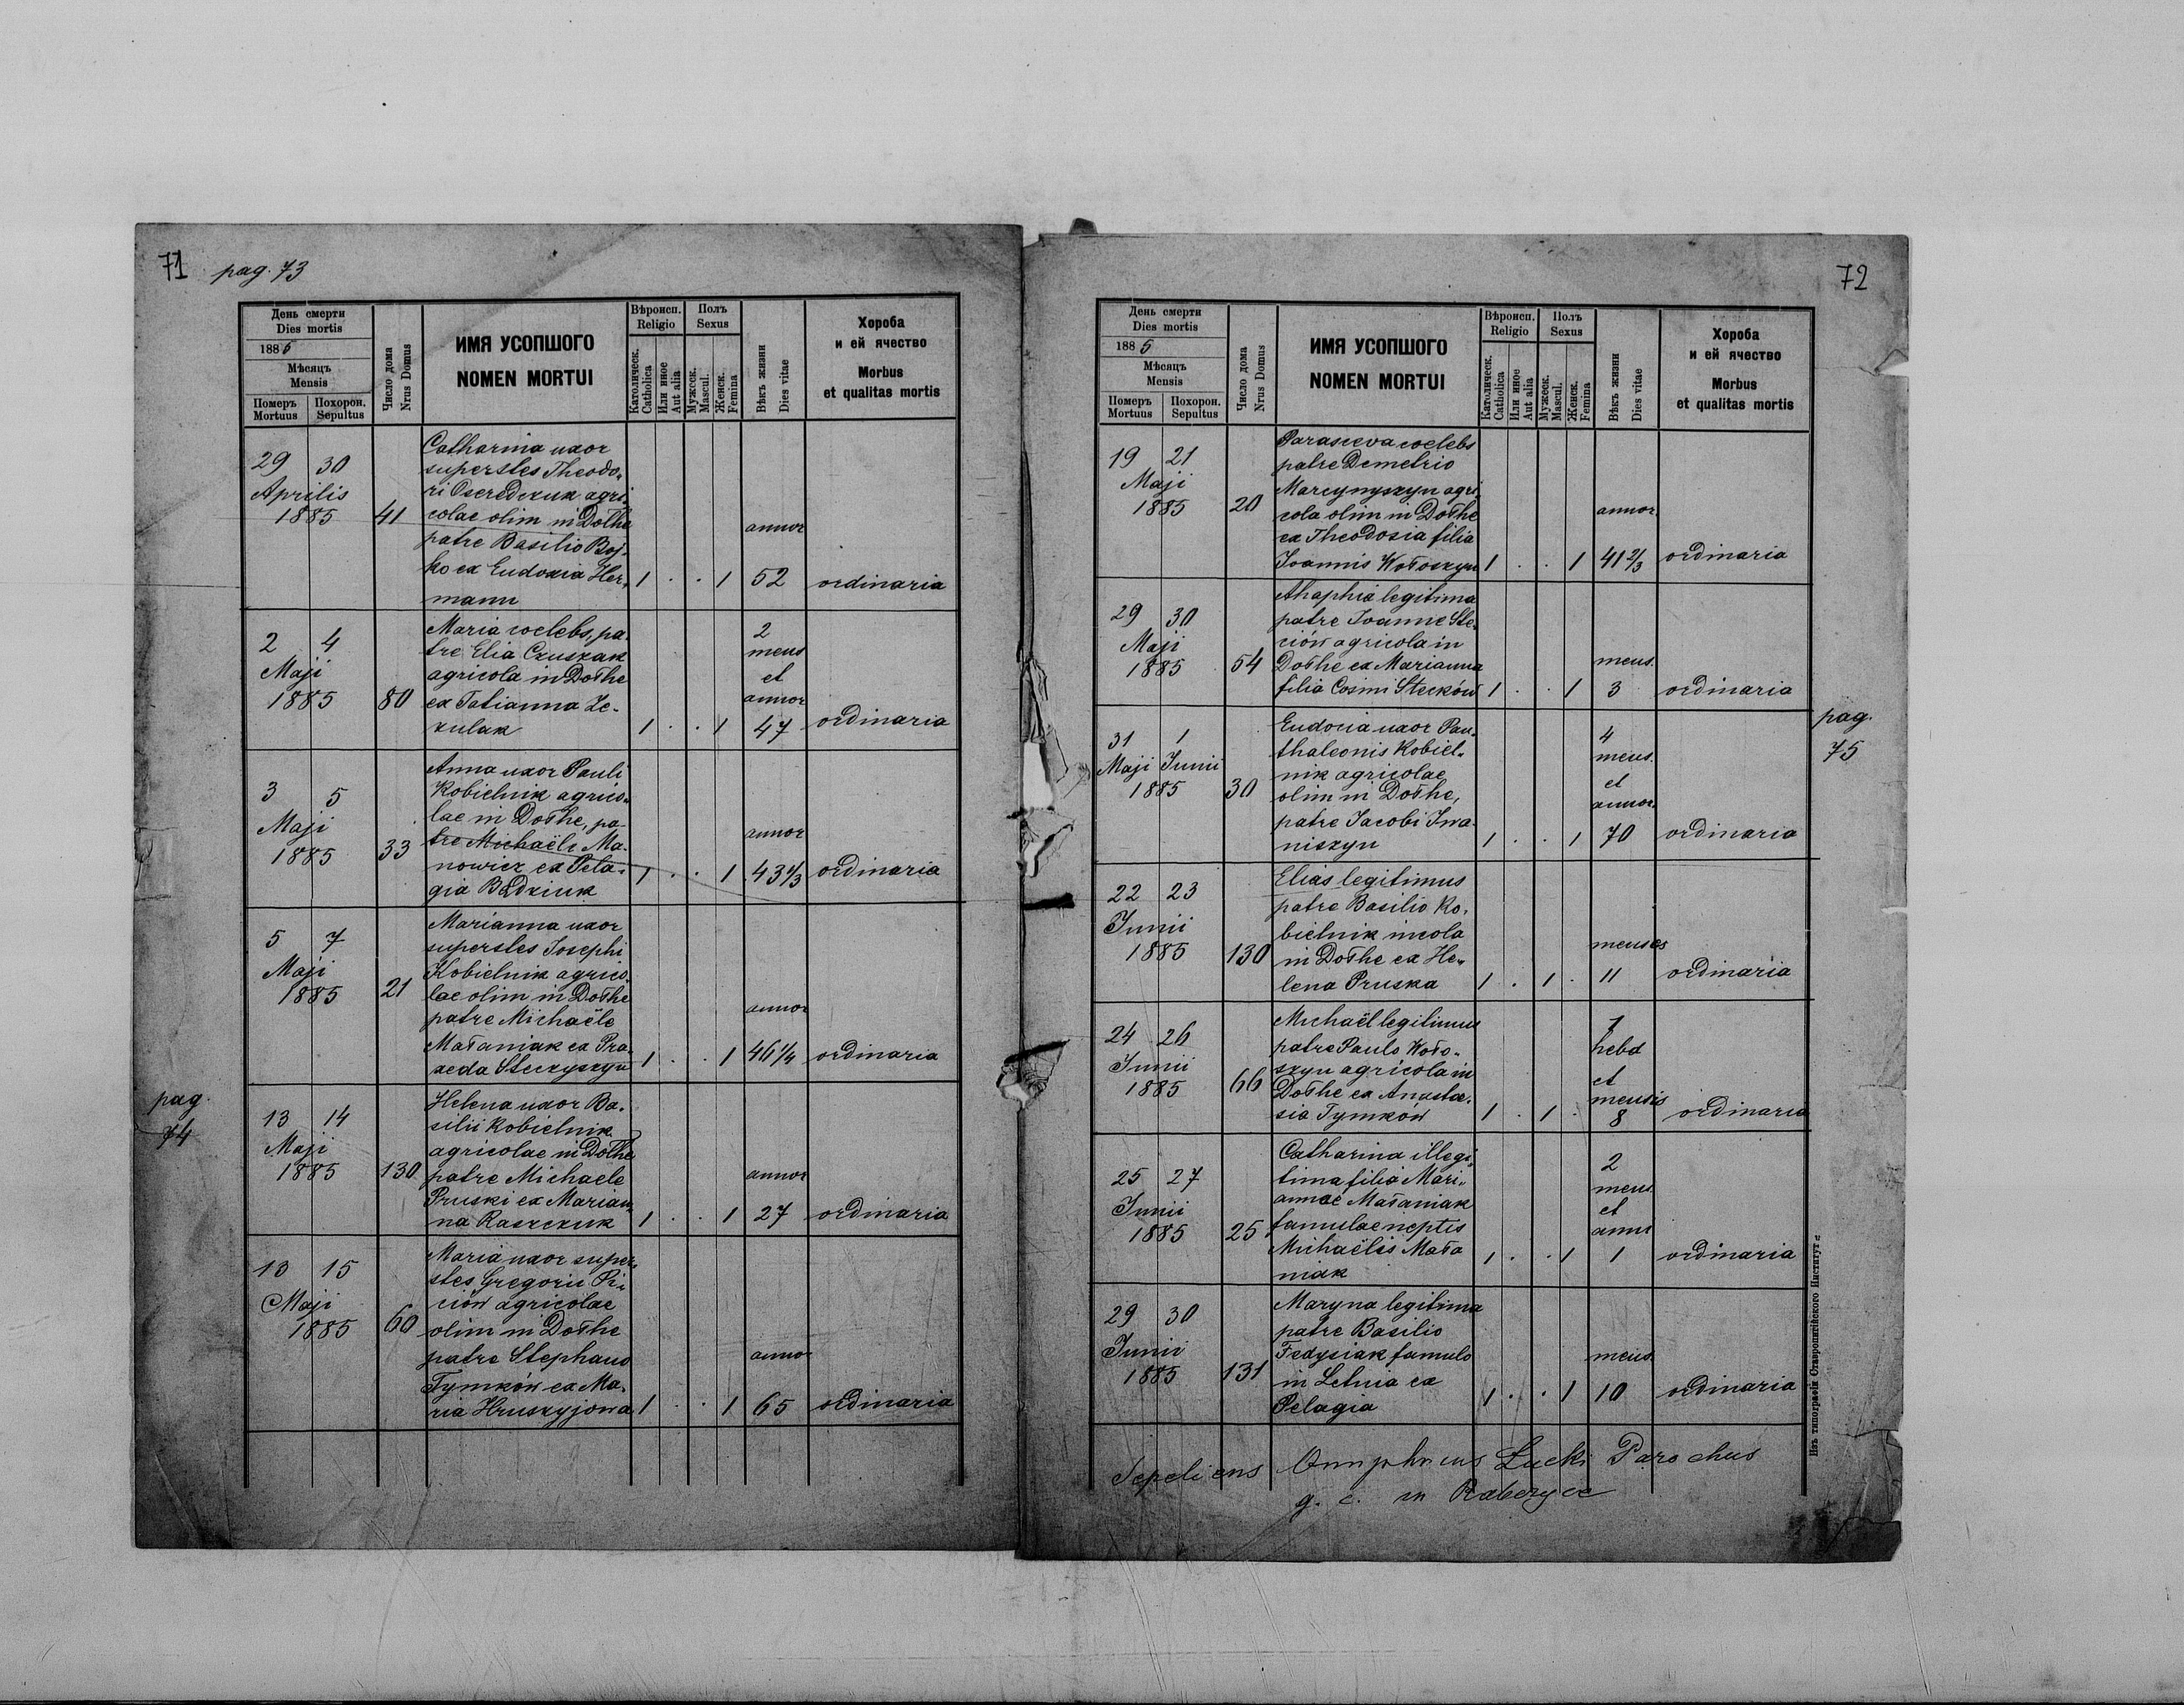 71 pag. 73
День смерти
Dies mortis
1885
Мѣсяцъ
Mensis
Померъ
Mortuus
Похорон.
Sepultus
Число дома
Nrus Domus
ИМЯ УСОПШОГО
NOMEN MORTUI
Вѣроисп.
Religio
Католическ.
Catholica
Или иное
Aut alia
Полъ
Sexus
Мужеск.
Mascul.
Женск.
Femina
Вѣкъ жизни
Dies vitae
Хороба
и ей ячество
Morbus
et qualitas mortis
29 30
Aprilis
1885 41
Catharina uxor
superstes Theodo„
ri Oseredczuk agri„
colae olim in Dołhe
patre Basilio Boj„
ko ex Eudoxia Her„
mann
1 . . 1
annor
52
ordinaria
2 4
Maji
1885 80
Maria coelebs, pa„
tre Elia Czuszak
agricola in Dołhe
ex Tatianna Ze„
zulak
1 . . 1
2
mens
et
annor
47
ordinaria
3 5
Maji
1885 33
Anna uxor Pauli
Kobielnik agrico„
lae in Dołhe, pa„
tre Michaële Ma„
nowicz ex Pela„
gia
1 . . 1
annor
43 1/3
ordinaria
5 7
Maji
1885 21
Marianna uxor
superstes Josephi
Kobielnik agrico„
lae olim in Dołhe
patre Michaële
Małaniak ex Pra„
xeda Steczyszyn
1 . . 1
annor
46 1/4
ordinaria
pag.
74
13 14
Maji
1885 130
Helena uxor Ba„
silii Kobielnik
agricolae in Dołhe
patre Michaele
Pruski ex Marian„
na Raszczuk
1 . . 1
annor
27
ordinaria
13 15
Maji
1885 60
Maria uxor super„
stes Gregorii Pi„
ciów agricolae
olim in Dołhe
patre Stephano
Tymków ex Ma„
ria Hruszyjowa
1 . . 1
annor
65
ordinaria
72
День смерти
Dies mortis
1885
Мѣсяцъ
Mensis
Померъ
Mortuus
Похорон.
Sepultus
Число дома
Nrus Domus
ИМЯ УСОПШОГО
NOMEN MORTUI
Вѣроисп.
Religio
Католическ.
Catholica
Или иное
Aut alia
Полъ
Sexus
Мужеск.
Mascul.
Женск.
Femina
Вѣкъ жизни
Dies vitae
Хороба
и ей ячество
Morbus
et qualitas mortis
19 21
Maji
1885 20
Parasceva coelebs
patre Demetrio
Marcynyszyn agri„
cola olim in Dołhe
ex Theodosia filia
Joannis Wołoszyn
1 . . 1
annor.
41 2/3
ordinaria
29 30
Maji
1885 54
Ahaphia legitima
patre Joanne Ste„
ciów agricola in
Dołhe ex Marianna
filia Cosmi Stecków
1 . . 1
mens.
3
ordinaria
pag.
75
31 1
Maji Junii
1885 30
Eudocia uxor Pan„
thaleonis Kobiel„
nik agricolae
olim in Dołhe,
patre Jacobi Iwa„
niszyn
1 . . 1
4
mens.
et
annor.
70
ordinaria
22 23
Junii
1885 130
Elias legitimus
patre Basilio Ko„
bielnik incola
in Dołhe ex He„
lena Pruska
1 . 1 .
menses
11
ordinaria
24 26
Junii
1885 66
Michaël legitimus
patre Paulo Woło„
szyn agricola in
Dołhe ex Anasta„
sia Tymków
1 . 1 .
1
hebd
et
mensis
8
ordinaria
25 27
Junii
1885 25
Catharina illegi„
tima filia Mari„
annae Małaniak
famulae neptis
Michaëlis Mała
niak
1 . . 1
2
mens.
et
annus
1
ordinaria
29 30
Junii
1885 131
Maryna legitima
patre Basilio
Fedysiak famulo
in Letnia ex
Pelagia
1 . . 1
mens.
10
ordinaria
Sepeliens Onuphrius Łucki Parochus
g. c. in
Изъ типографіи Ставропигійского Института